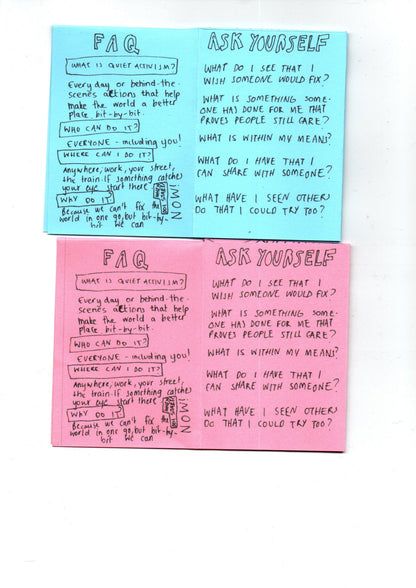 FAQ
WHAT IS QUIET ACTIVISM?
Everyday or behind-the-
scenes actions that help
make the world a better
place bit-by-bit.
WHO CAN DO IT?
EVERYONE - including you!
WHERE CAN I DO IT?
Anywhere, work, your street,
the train. If something catches
your eye start there
WHY DO IT?
Because we can't fix the
world in one go, but bit-by-
bit we can
NOW!
ASK YOURSELF
WHAT DO I SEE THAT I
WISH SOMEONE WOULD FIX?
WHAT IS SOMETHING SOME-
ONE HAS DONE FOR ME THAT
PROVES PEOPLE STILL CARE?
WHAT IS WITHIN MY MEANS?
WHAT DO I HAVE THAT I
CAN SHARE WITH SOMEONE?
WHAT HAVE I SEEN OTHERS
DO THAT I COULD TRY TOO?
FAQ
WHAT IS QUIET ACTIVISM?
Everyday or behind-the-
scenes actions that help
make the world a better
place bit-by-bit.
WHO CAN DO IT?
EVERYONE - including you!
WHERE CAN I DO IT?
Anywhere, work, your street,
the train. If something catches
your eye start there
WHY DO IT?
Because we can't fix the
world in one go, but bit-by-
bit we can
NOW!
ASK YOURSELF
WHAT DO I SEE THAT I
WISH SOMEONE WOULD FIX?
WHAT IS SOMETHING SOME-
ONE HAS DONE FOR ME THAT
PROVES PEOPLE STILL CARE?
WHAT IS WITHIN MY MEANS?
WHAT DO I HAVE THAT I
CAN SHARE WITH SOMEONE?
WHAT HAVE I SEEN OTHERS
DO THAT I COULD TRY TOO?